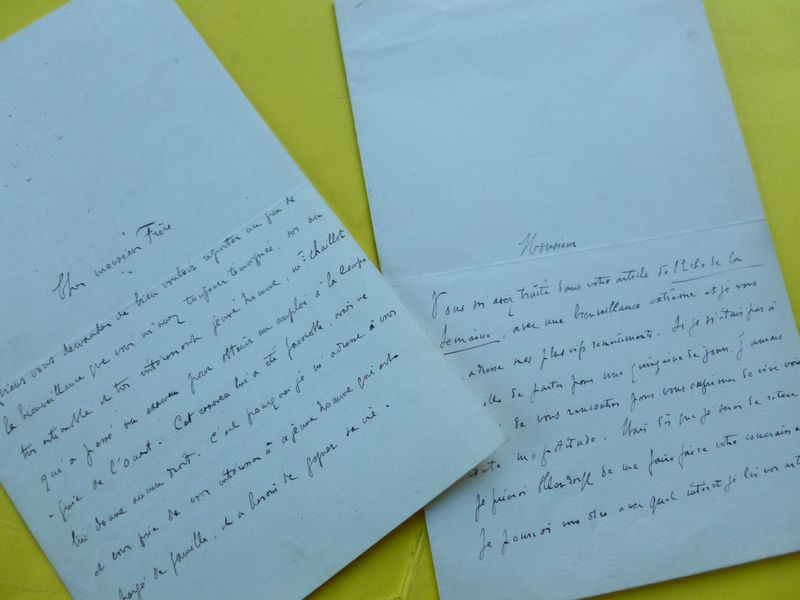 Cher monsieur Frère
viens vous demander de bien vouloir reporter un peu de
la bienveillance que vous m'avez toujours témoignée, sur un
très estimable et très intéressant jeune homme, Mr Chaillot
qui a passé un examen pour obtenir un emploi à la Compa
-gnie de l'Ouest. Cet examen lui a été favorable, mais ne
lui donne aucun droit. C'est pourquoi je m'adresse à vous
et vous prie de vous intéresser à ce jeune homme qui est
chargé de famille, et a besoin de gagner sa vie.
Monsieur
Vous m'avez traité dans votre article de l'Echo de la
Semaine, avec une bienveillance extrême et je vous
adresse mes plus vifs remerciements. Si je n'étais pas à
veille de partir pour une quinzaine de jours, j'aurais
de vous rencontrer pour vous exprimer de vive voix
toute ma gratitude. Mais dès que je serai de retour
je prierai Ollendorff de me faire faire votre connaissan
Je pourrai vous dire avec quel intérêt je lis vos art